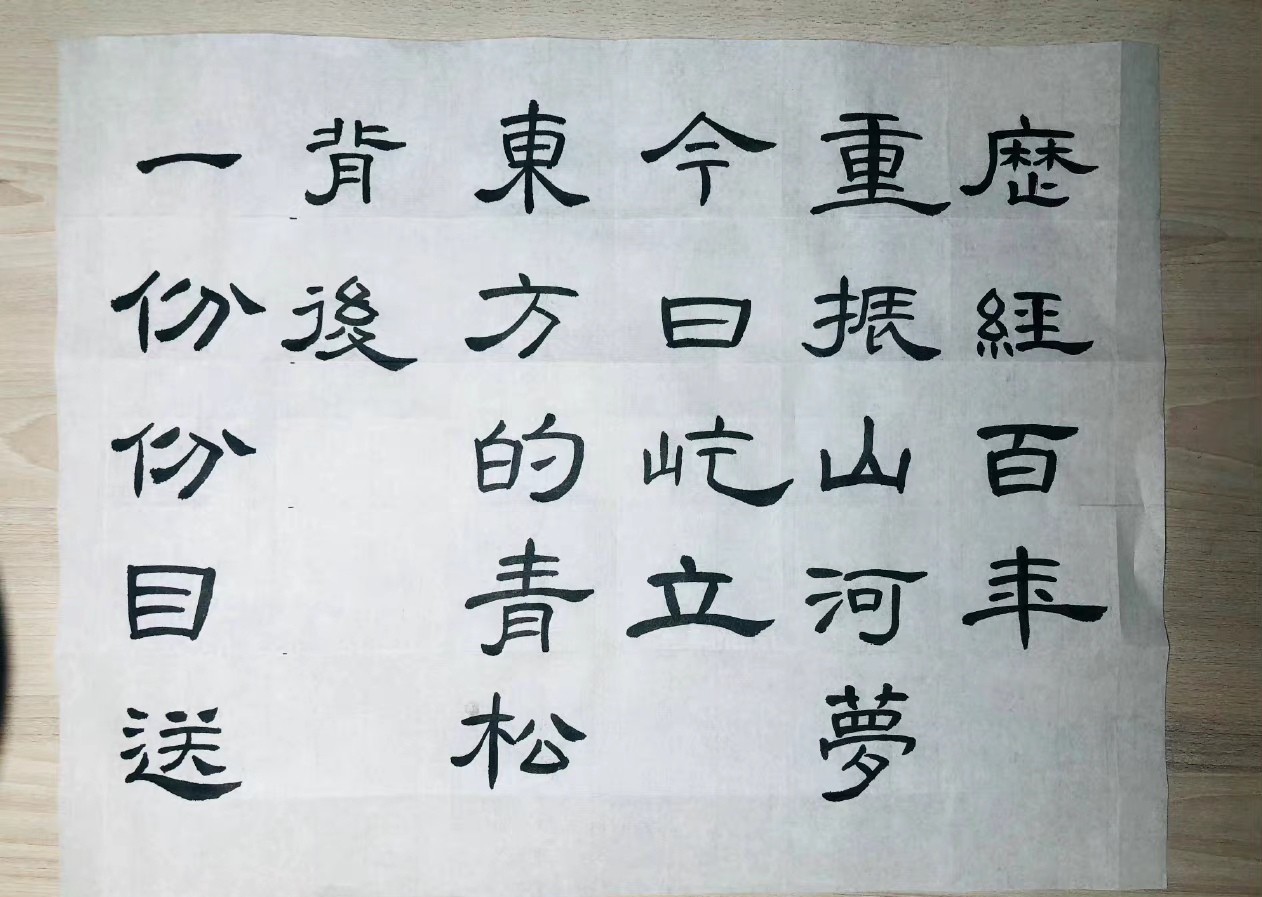 歷經百年
重振山河夢
今日屹立
東方的青松
背後
一份份目送